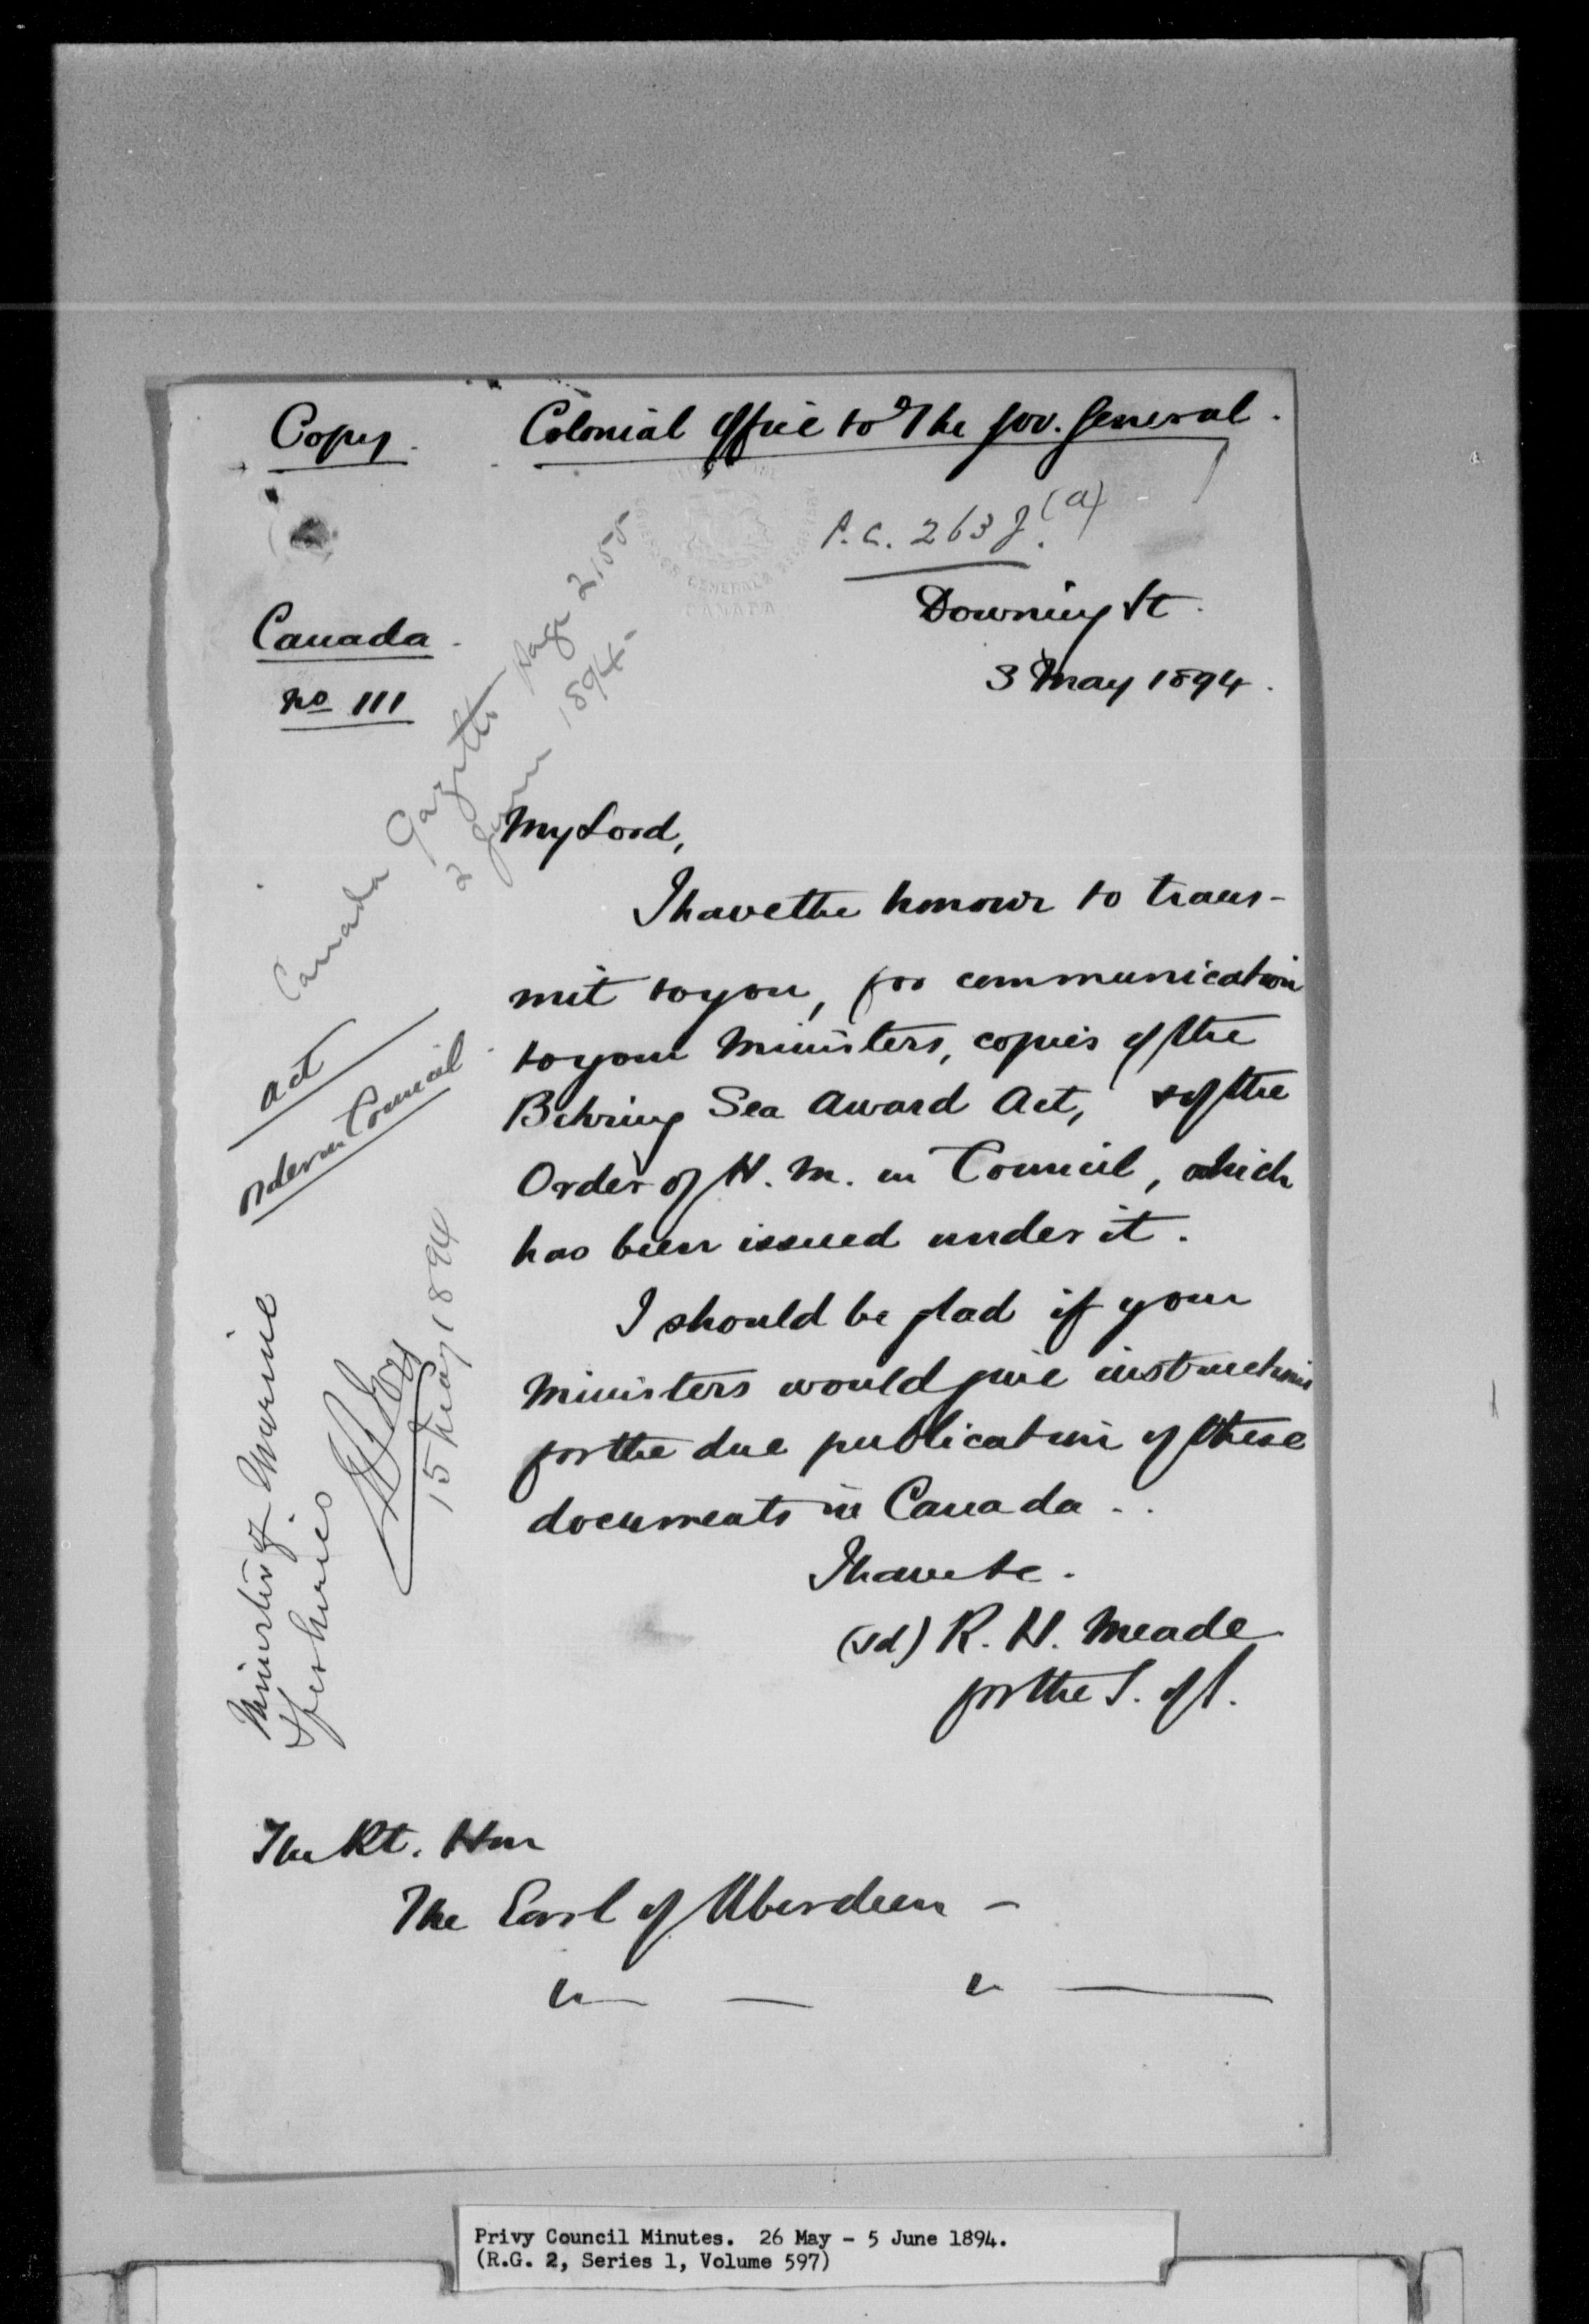 Copy. Colonial Office to The Gov. General.
P.C. 263 J. (a)
Downing St.
3 May 1894.
Canada.
No 111
Canada Gazette page 2155
2 June 1894-
My Lord,
I have the honour to trans-
mit to you, for communication
to your Ministers, copies of the
Behring Sea Award Act, & of the
Order of H. M. in Council, which
has been issued under it.
I should be glad if your
Ministers would give instructions
for the due publication of these
documents in Canada..
I have &c.
(sd) R. H. Meade
for the S. of S.
Act
Order in Council
Minister of Marine
& Fisheries
15 May 1894
The Rt. Hon
The Earl of Aberdeen -
GENERAL'S
CANADA
Privy Council Minutes. 26 May - 5 June 1894.
(R.G. 2, Series 1, Volume 597)